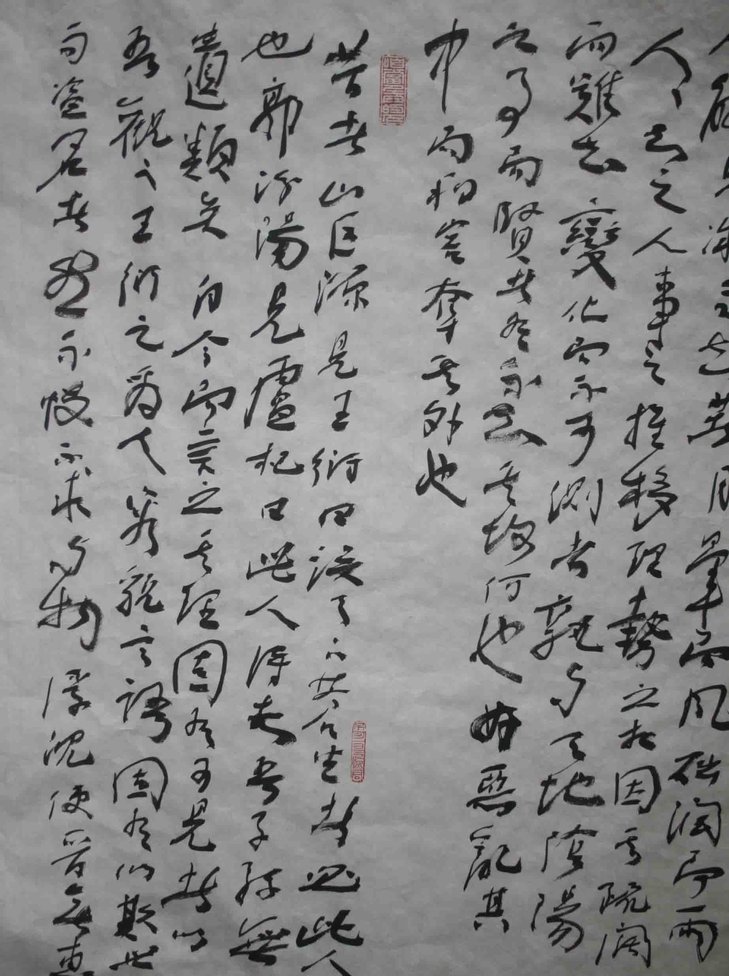 人能見微而知著月暈而風礎潤而雨
人人知之人事之推移理勢之相因其疏闊
而難知變化而不可測者孰與天地陰陽
之事而賢者有不知其故何也好惡亂其
中而利害奪其外也
昔者山巨源見王衍曰誤天下蒼生者必此人
也郭汾陽見盧杞曰此人得志吾子孫無
遺類矣自今而言之其理固有可見者以
吾觀之王衍之為人容貌言語固有以欺世
而盜名者然不忮不求與物浮沉使晉無惠